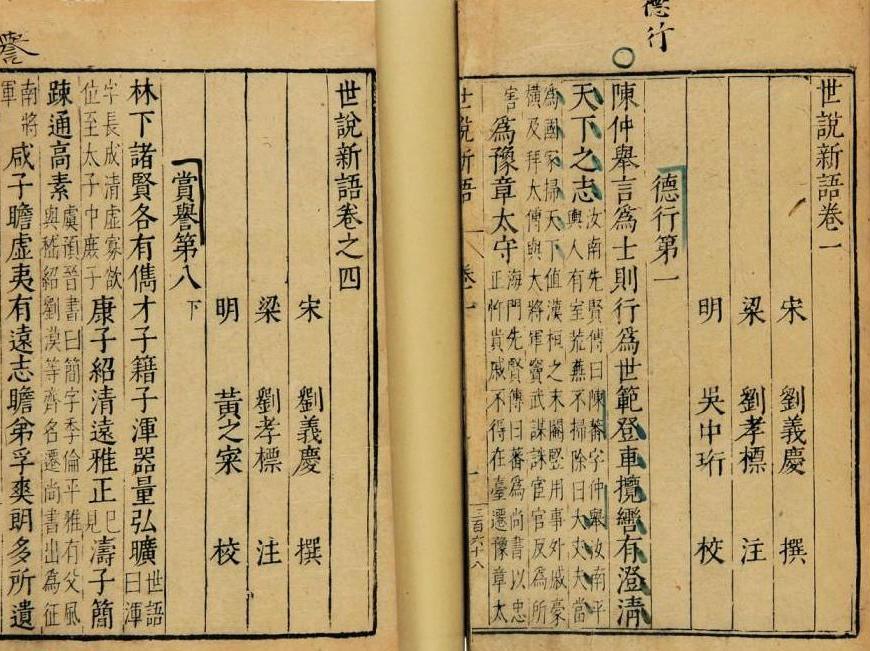 德行
世說新語卷一
宋 劉義慶 撰
梁 劉孝標 注
明 吳中珩 校
德行第一
陳仲舉言爲士則行爲世範登車攬轡有澄清
天下之志汝南先賢傳曰陳蕃字仲舉汝南平輿人有室荒蕪不掃除曰大丈夫當
為國家掃天下值漢桓之末閹豎用事外戚豪橫及拜太傅與大將軍竇武謀誅宦官反為所
害爲豫章太守海內先賢傳曰蕃為尚書以忠正忤貴戚不得在臺遷豫章太
世說新語 卷一 一 三百六十八
譽
世說新語卷之四
宋 劉義慶 撰
梁 劉孝標 注
明 黃之寀 校
賞譽第八下
林下諸賢各有儁才子籍子渾器量弘曠世語曰渾
字長成清虛寡欲位至太子中庶子康子紹清遠雅正已見濤子簡
疎通高素虞預晉書曰簡字季倫平雅有父風與嵇紹劉漠等齊名遷尚書出為征
南將軍咸子瞻虛夷有遠志瞻弟孚爽朗多所遺